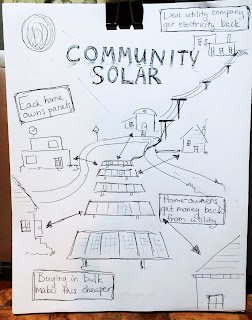 Local utility company
get electricity back
COMMUNITY
SOLAR
Each home
owns panels
Homeowners
get money back
from utility
Buying in bulk
makes this cheaper